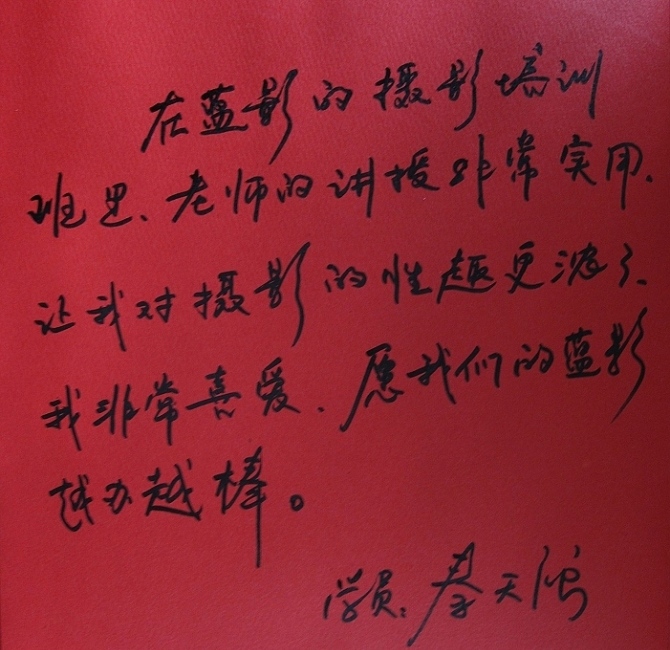 在蓝影的摄影培训
班里、老师的讲授非常实用、
让我对摄影的性趣更浓了、
我非常喜爱、愿我们的蓝影
越办越棒。
学员:秦天鸿